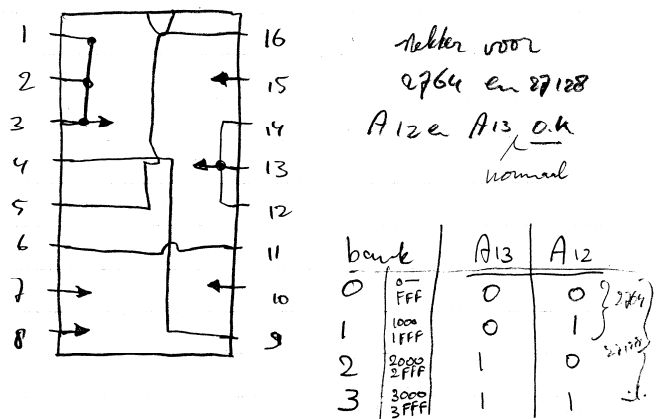 1 16
2 15
3 14
4 13
5 12
6 11
7 10
8 9
stekker voor
2764 en 27128
A12 en A13 O.K
normaal
bank A13 A12
0 0— FFF 0 0
1 1000 1FFF 0 1
2 2000 2FFF 1 0
3 3000 3FFF 1 1
2764
27128